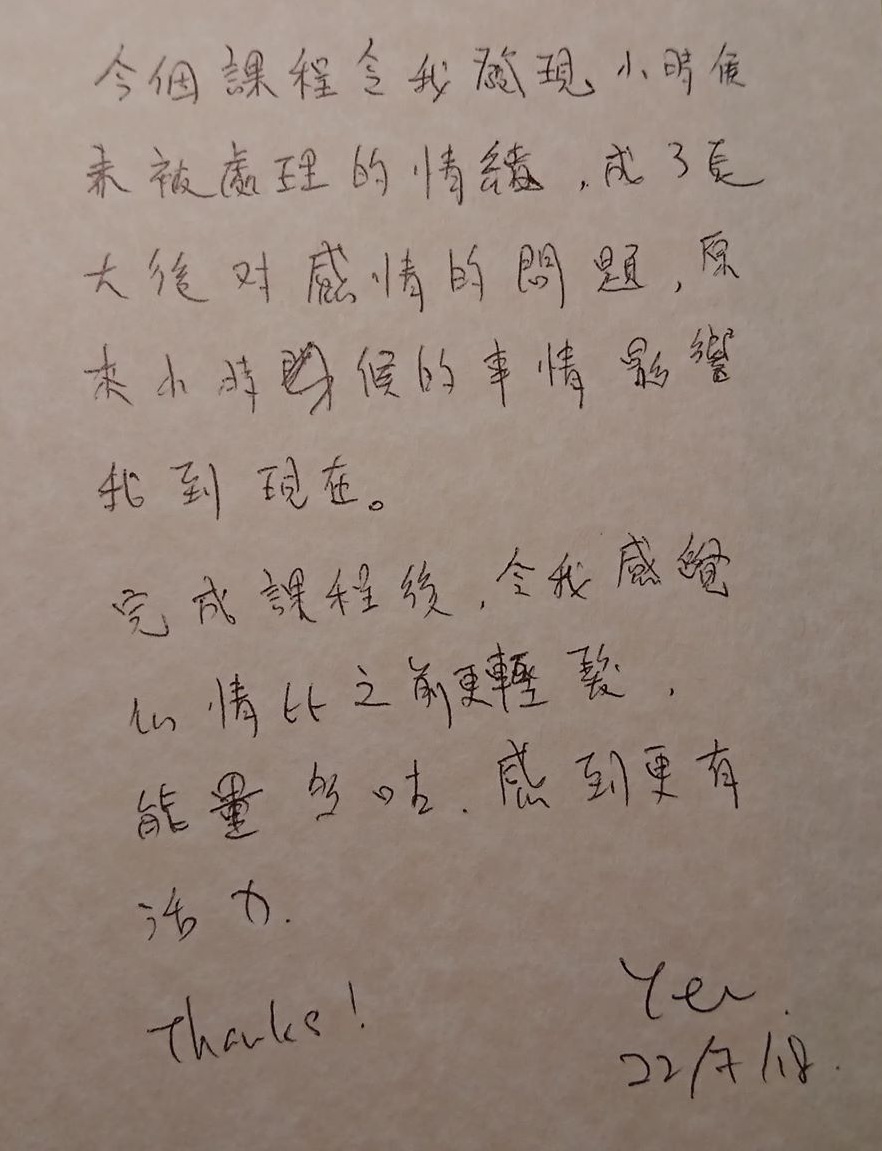 今個課程令我發現小時候
未被處理的情緒,成了長
大後对感情的問題,原
來小時候的事情影響
我到現在。
完成課程後,令我感覺
心情比之前更輕鬆,
能量多咗.感到更有
活力.
Thanks!
Yen.
22/7/18.